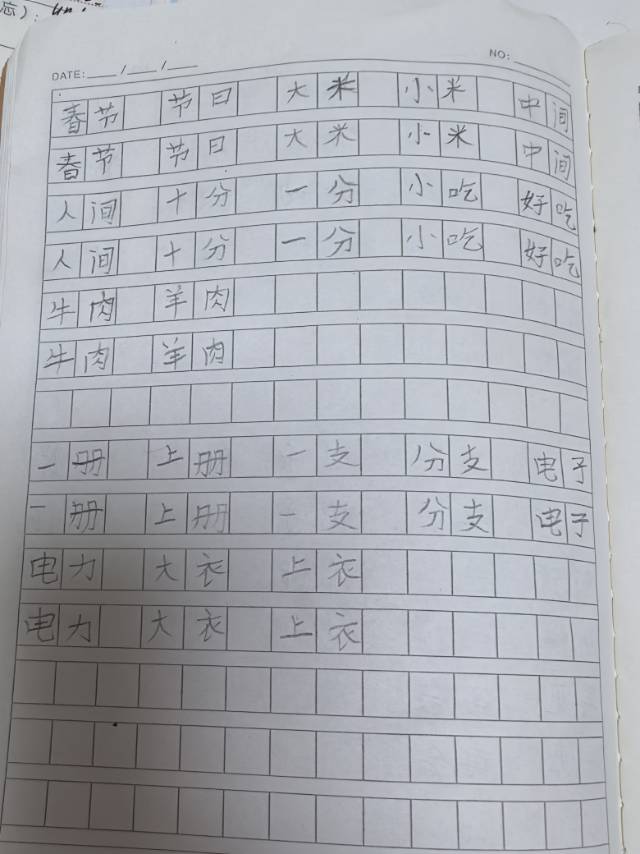 忘）：
DATE:___/___/___ NO:______
春节 节日 大米 小米 中间
春节 节日 大米 小米 中间
人间 十分 一分 小吃 好吃
人间 十分 一分 小吃 好吃
牛肉 羊肉
牛肉 羊肉
一册 上册 一支 分支 电子
一册 上册 一支 分支 电子
电力 大衣 上衣
电力 大衣 上衣